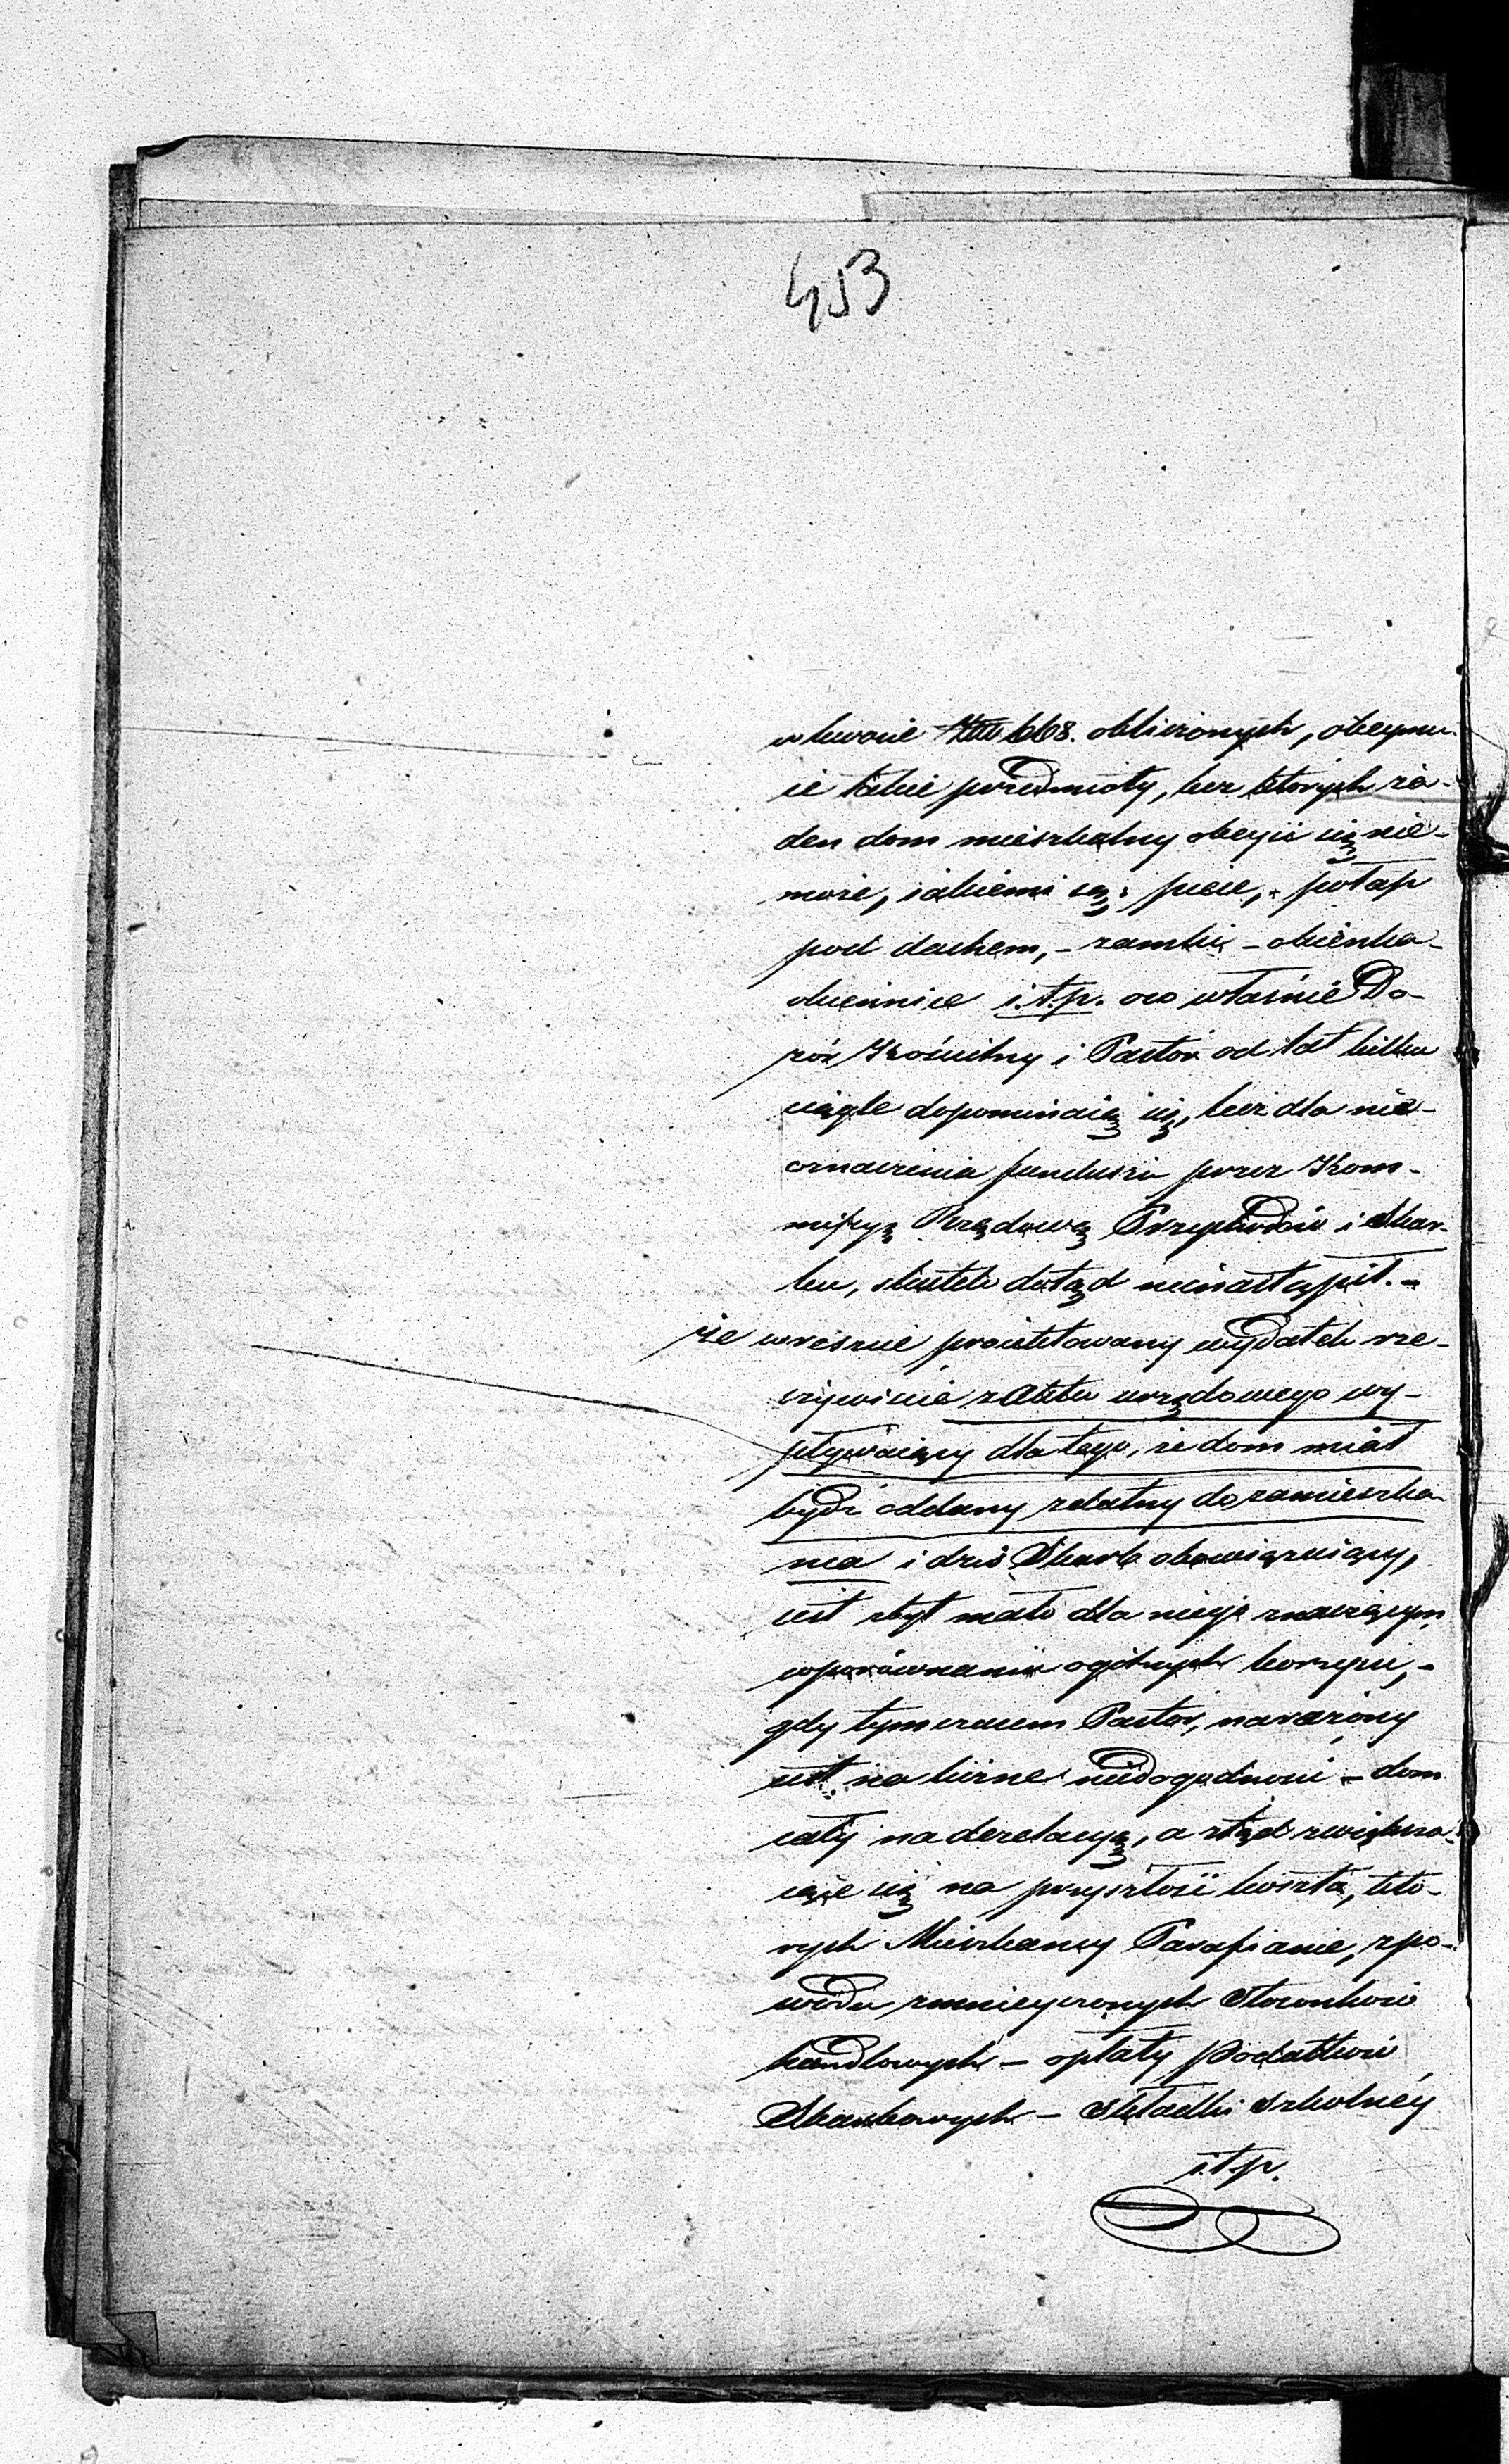 453
w kwocie Złł 668. obliczonych, obeymu-
ie takie przedmioty, bez których ża-
den dom mieszkalny obeyść się nie-
może, iakiemi są: piece, - pułap
pod dachem, - zamki - okienka -
okiennice i.t.p. oco właśnie Do-
zór Kościelny i Pastor od lat kilku
ciągle dopominaią się, lecz dla nie-
oznaczenia funduszu przez Kom-
missyą Rządową Przychodów i Skar-
bu, skutek dotąd nienastąpił. -
że wreszcie proiektowany wydatek rze-
czywiście z Aktu urzędowego wy-
pływaiący dla tego, że dom miał
bydź oddany zdatny do zamieszka-
nia i dziś Skarb obowiązuiący,
iest zbyt mało dla niego znaczącym
w porównaniu ogólnych korzyści, -
gdy tymczasem Pastor, narażony
iest na liczne niedogodności - dom
cały na dezelacyą, a ztąd zwiększa-
iące się na przyszłość koszta, któ-
rych Mieszkańcy Parafianie, z po-
wodu zmnieyszonych Stosunków
handlowych - opłaty Podatków
Skarbowych - składki szkolnéy
i.t.p.